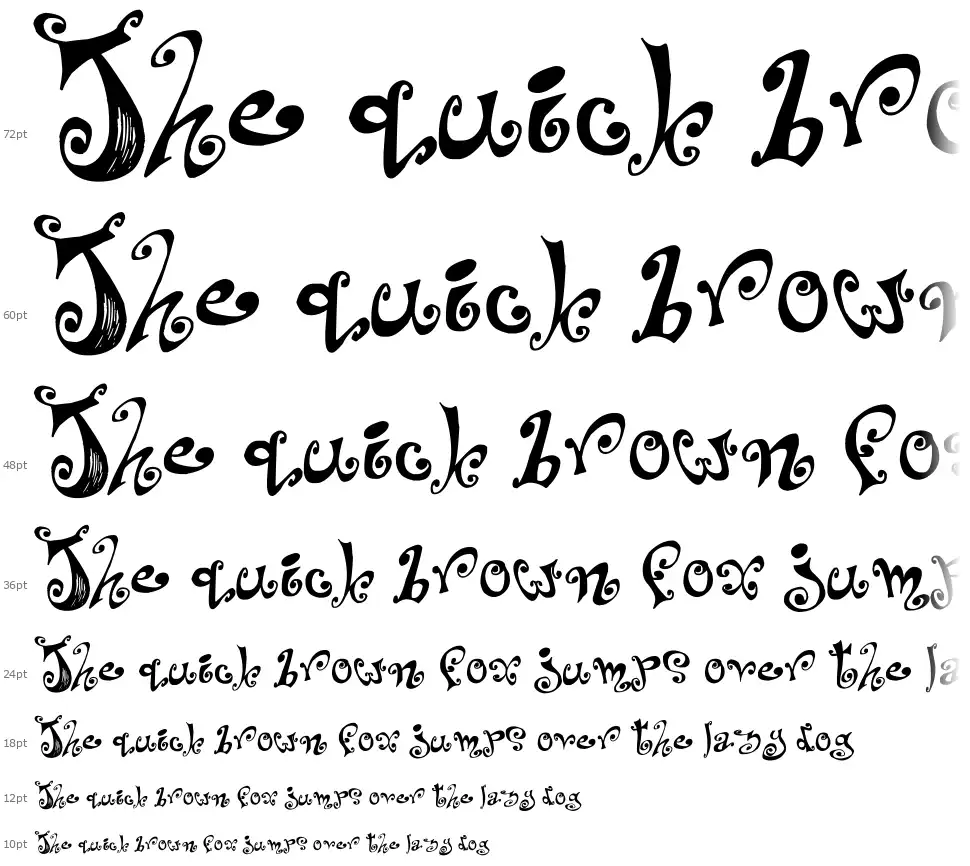 72pt The quick br
60pt The quick brown
48pt The quick brown fo
36pt The quick brown fox jump
24pt The quick brown fox jumps over the la
18pt The quick brown fox jumps over the lazy dog
12pt The quick brown fox jumps over the lazy dog
10pt The quick brown fox jumps over the lazy dog